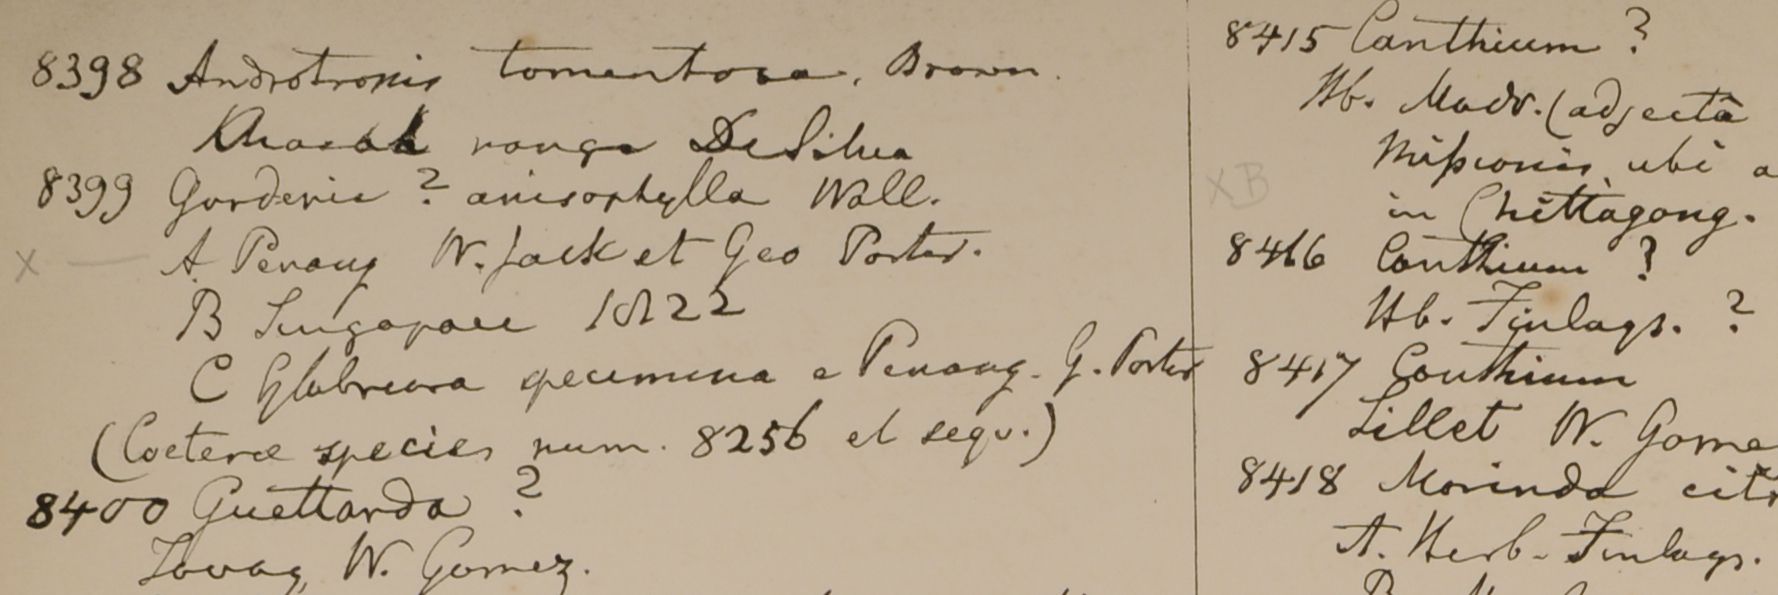 8398 Androtropis tomentosa, Brown.
range DeSilva
8399 Gardenia ? anisophylla Wall.
X — A Penang W. Jack et Geo Porter.
B Singapore 1822
C Glabriora specimina e Penang. G. Porter
(Coeterae species num. 8256 et seqv.)
8400 Guettarda ?
Tavoy, W. Gomez.
8415 Canthium ?
Hb. Madr. (adjecta
Missionis, ubi a
XB
in Chittagong.
8416 Canthium ?
Hb. Finlays. ?
8417 Canthium
Sillet W. Gome
8418 Morinda citr
A. Herb. Finlays.